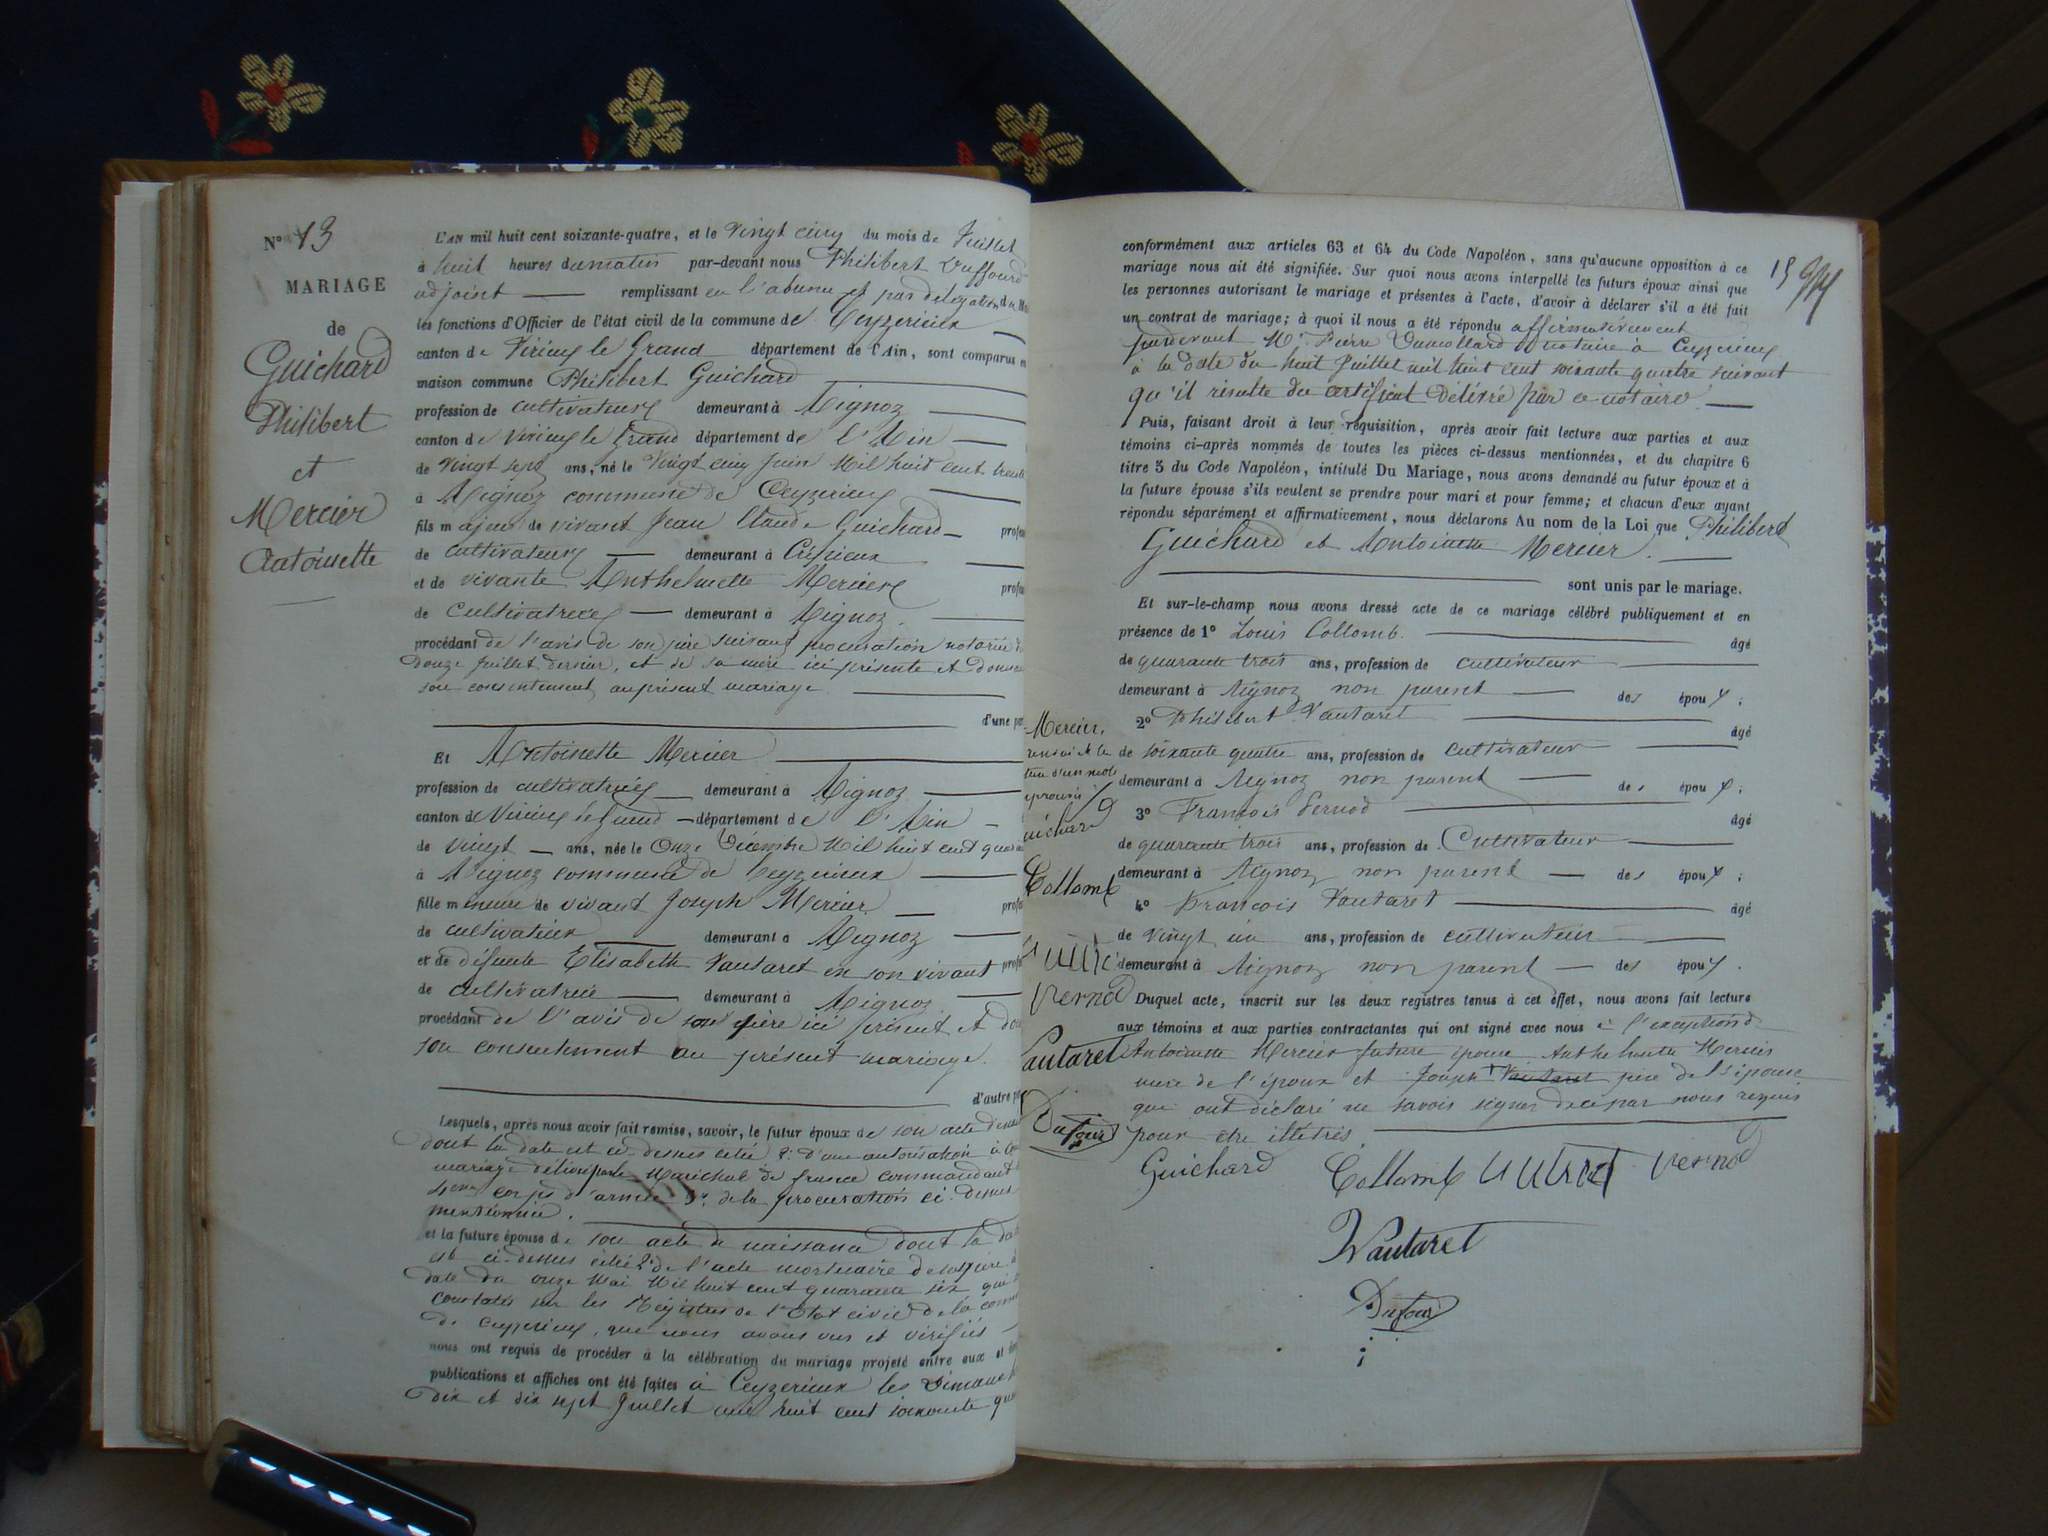 N° 13
MARIAGE
de
Guichard
Philibert
et
Mercier
Antoinette
L'AN mil huit cent soixante-quatre, et le vingt cinq du mois de Juillet
à huit heures du matin par-devant nous Philibert
adjoint remplissant en l'absence et par délégation du
les fonctions d'Officier de l'état civil de la commune de Ceyzerieux
canton de Virieu le Grand département de l'Ain, sont comparus en
maison commune Philibert Guichard
profession de cultivateur demeurant à Aignoz
canton de Virieu le Grand département de l'Ain
de vingt sept ans, né le vingt cinq Juin Mil huit cent trente
à Aignoz commune de Ceyzerieux
fils majeur de vivant Jean Claude Guichard
de cultivateur demeurant à
et de vivante Anthelmette Mercier
de cultivatrice demeurant à Aignoz.
procédant de l'avis de son père suivant procuration notariée
Douze Juillet dernier, et de sa mère ici présente et
son consentement au présent mariage
d'une
Et Antoinette Mercier
profession de cultivatrice demeurant à Aignoz
canton de Virieu le Grand département de l'Ain
de vingt ans, née le Onze Décembre Mil huit cent
à Aignoz commune de Ceyzerieux
fille mineure de vivant Joseph Mercier
de cultivateur demeurant à Aignoz
et de défunte Elisabeth Vautaret en son vivant
de cultivatrice demeurant à Aignoz
procédant de l'avis de son père ici présent et
son consentement au présent mariage.
d'autre
Lesquels, après nous avoir fait remise, savoir, le futur époux de son acte de
dont la date est ci-dessus citée 2° D'une autorisation
mariage délivrée par le Maréchal de france commandant
corps d'armée 3° de la procuration ci-dessus
mentionnée.
et la future épouse de son acte de naissance dont la
est ci-dessus citée 2° de l'acte mortuaire de
date du onze Mai Mil huit cent quarante six qui
constatés sur les Registres de l'Etat civil de la
de Ceyzerieux, que nous avons vus et vérifiés
nous ont requis de procéder à la célébration du mariage projeté entre eux et
publications et affiches ont été faites à Ceyzerieux les Dimanches
dix et dix sept Juillet mil huit cent soixante
15
conformément aux articles 63 et 64 du Code Napoléon, sans qu'aucune opposition à ce
mariage nous ait été signifiée. Sur quoi nous avons interpellé les futurs époux ainsi que
les personnes autorisant le mariage et présentes à l'acte, d'avoir à déclarer s'il a été fait
un contrat de mariage; à quoi il nous a été répondu affirmativement
pardevant Me Pierre notaire à Ceyzerieux
à la date du huit Juillet mil huit cent soixante quatre suivant
qu'il résulte du certificat délivré par ce notaire.
Puis, faisant droit à leur réquisition, après avoir fait lecture aux parties et aux
témoins ci-après nommés de toutes les pièces ci-dessus mentionnées, et du chapitre 6
titre 5 du Code Napoléon, intitulé Du Mariage, nous avons demandé au futur époux et à
la future épouse s'ils veulent se prendre pour mari et pour femme; et chacun d'eux ayant
répondu séparément et affirmativement, nous déclarons Au nom de la Loi que Philibert
Guichard et Antoinette Mercier.
sont unis par le mariage.
Et sur-le-champ nous avons dressé acte de ce mariage célébré publiquement et en
présence de 1° Louis Collomb. âgé
de quarante trois ans, profession de cultivateur
demeurant à Aignoz non parent des époux;
2° Philibert Vautaret âgé
de soixante quatre ans, profession de cultivateur
demeurant à Aignoz non parent des époux;
3° François Vernod âgé
de quarante trois ans, profession de Cultivateur
demeurant à Aignoz non parent des époux;
4° François Vautaret âgé
de vingt un ans, profession de cultivateur
demeurant à Aignoz non parent des époux.
Duquel acte, inscrit sur les deux registres tenus à cet effet, nous avons fait lecture
aux témoins et aux parties contractantes qui ont signé avec nous à l'exception d'
Antoinette Mercier future épouse Anthelmette Mercier
mère de l'époux et Joseph Vautaret père de l'épouse
qui ont déclaré ne savoir signer de ce par nous requis
pour être illétrés.
Mercier,
Guichard
Collomb
Vernod
Vautaret
Dufour
Guichard Collomb Vernod
Vautaret
Dufour